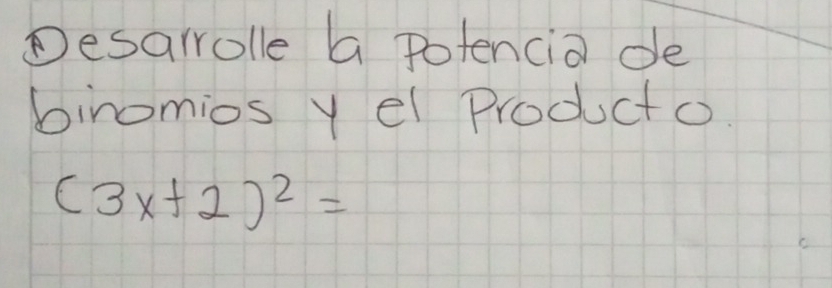 Desarrolle la Potencia de
binomios y el Producto.
(3x+2)² =